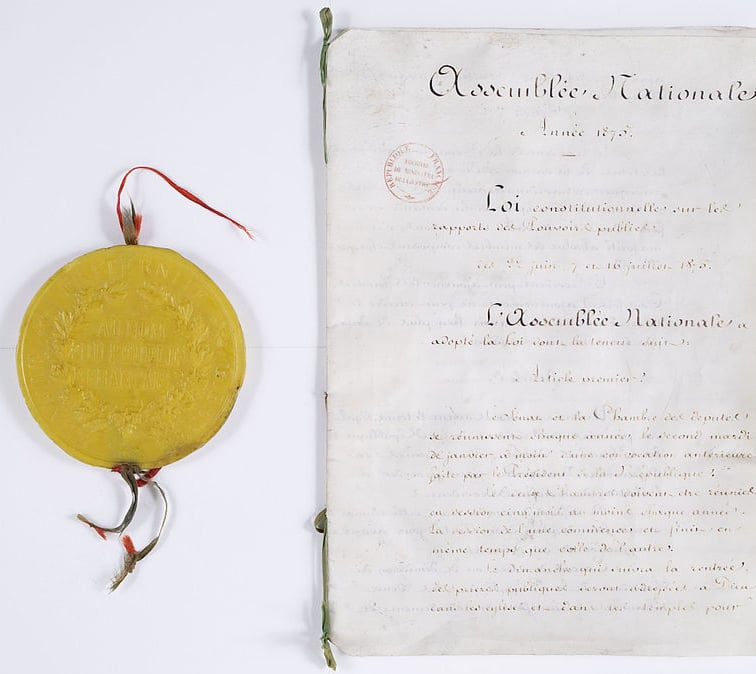 AU NOM
DU PEUPLE
FRANÇAIS
Assemblée Nationale
Année 1875.
RÉPUBLIQUE FRANÇ
Loi constitutionnelle sur les
rapports des Pouvoirs publics.
des 22 juin, 7 et 16 juillet 1875.
L'Assemblée Nationale a
adopté la Loi dont la teneur suit:
Article premier.
Le Sénat et la Chambre des députés
se réunissent chaque année, le second mardi
de janvier, à moins d'une convocation antérieure
faite par le Président de la République.
Les deux Chambres doivent être réunies
en session cinq mois au moins chaque année.
La session de l'une commence et finit en
même temps que celle de l'autre.
Le dimanche qui suivra la rentrée,
des prières publiques seront adressées à Dieu
dans les églises et dans les temples pour